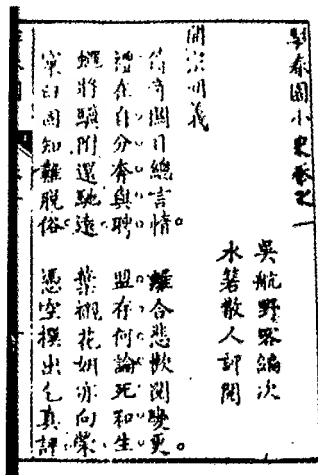 駐春園小史卷之一
吳航野客編次
水箬散人評閱
開宗明義
傳奇關目總言情　離合悲歡閱變更
禮在自分奔與聘　盟存何論死和生
蠅將驥附還馳遠　葉襯花妍亦向榮
窠臼固知難脫俗　憑空撰出乞真評